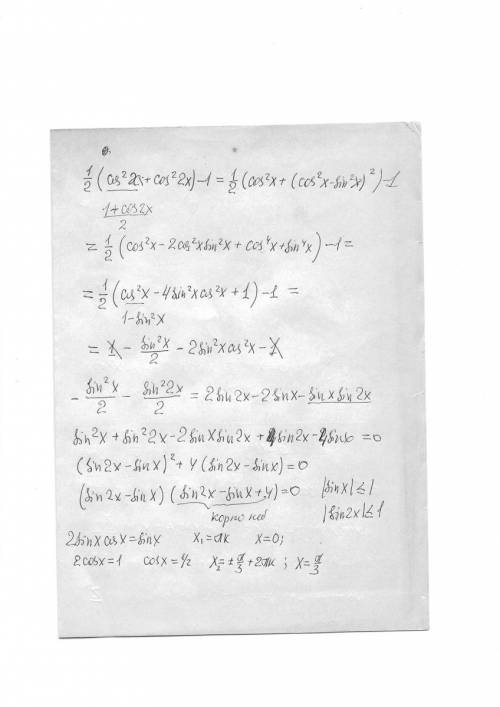 1/2 (cos²x + cos²2x) - 1 = 1/2 (cos²x + (cos²x - sin²x)²) - 1
1 + cos2x / 2
= 1/2 (cos²x - 2cos²x sin²x + cos⁴x + sin⁴x) - 1 =
= 1/2 (cos²x - 4sin²x cos²x + 1) - 1 =
1 - sin²x
= 1 - sin²x/2 - 2sin²x cos²x - 1
- sin²x/2 - sin²2x/2 = 2sin2x - 2sinx - sinx sin2x
sin²x + sin²2x - 2sinx sin2x + 4sin2x - 4sinx = 0
(sin2x - sinx)² + 4(sin2x - sinx) = 0
(sin2x - sinx) (sin2x - sinx + 4) = 0 |sinx| ≤ 1
корно нев |sin2x| ≤ 1
2sinx cosx = sinx x₁ = πk x = 0;
2cosx = 1 cosx = 1/2 x₂ = ± π/3 + 2πk ; x = π/3